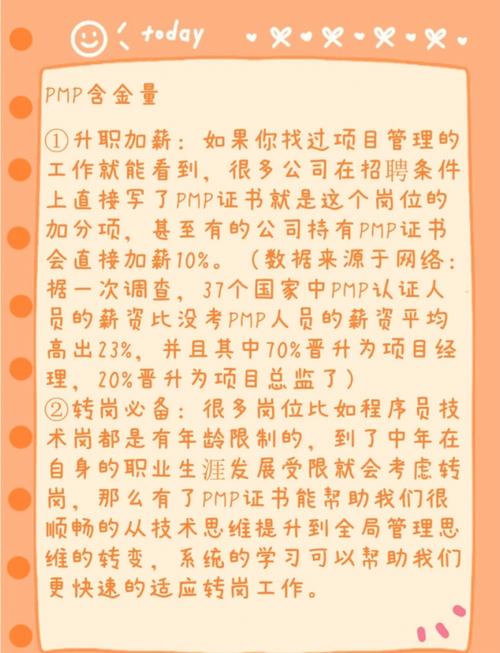 today
PMP含金量
①升职加薪：如果你找过项目管理的
工作就能看到，很多公司在招聘条件
上直接写了PMP证书就是这个岗位的
加分项，甚至有的公司持有PMP证书
会直接加薪10%。（数据来源于网络：
据一次调查，37个国家中PMP认证人
员的薪资比没考PMP人员的薪资平均
高出23%，并且其中70%晋升为项目经
理，20%晋升为项目总监了）
②转岗必备：很多岗位比如程序员技
术岗都是有年龄限制的，到了中年在
自身的职业生涯发展受限就会考虑转
岗，那么有了PMP证书能帮助我们很
顺畅的从技术思维提升到全局管理思
维的转变，系统的学习可以帮助我们
更快速的适应转岗工作。